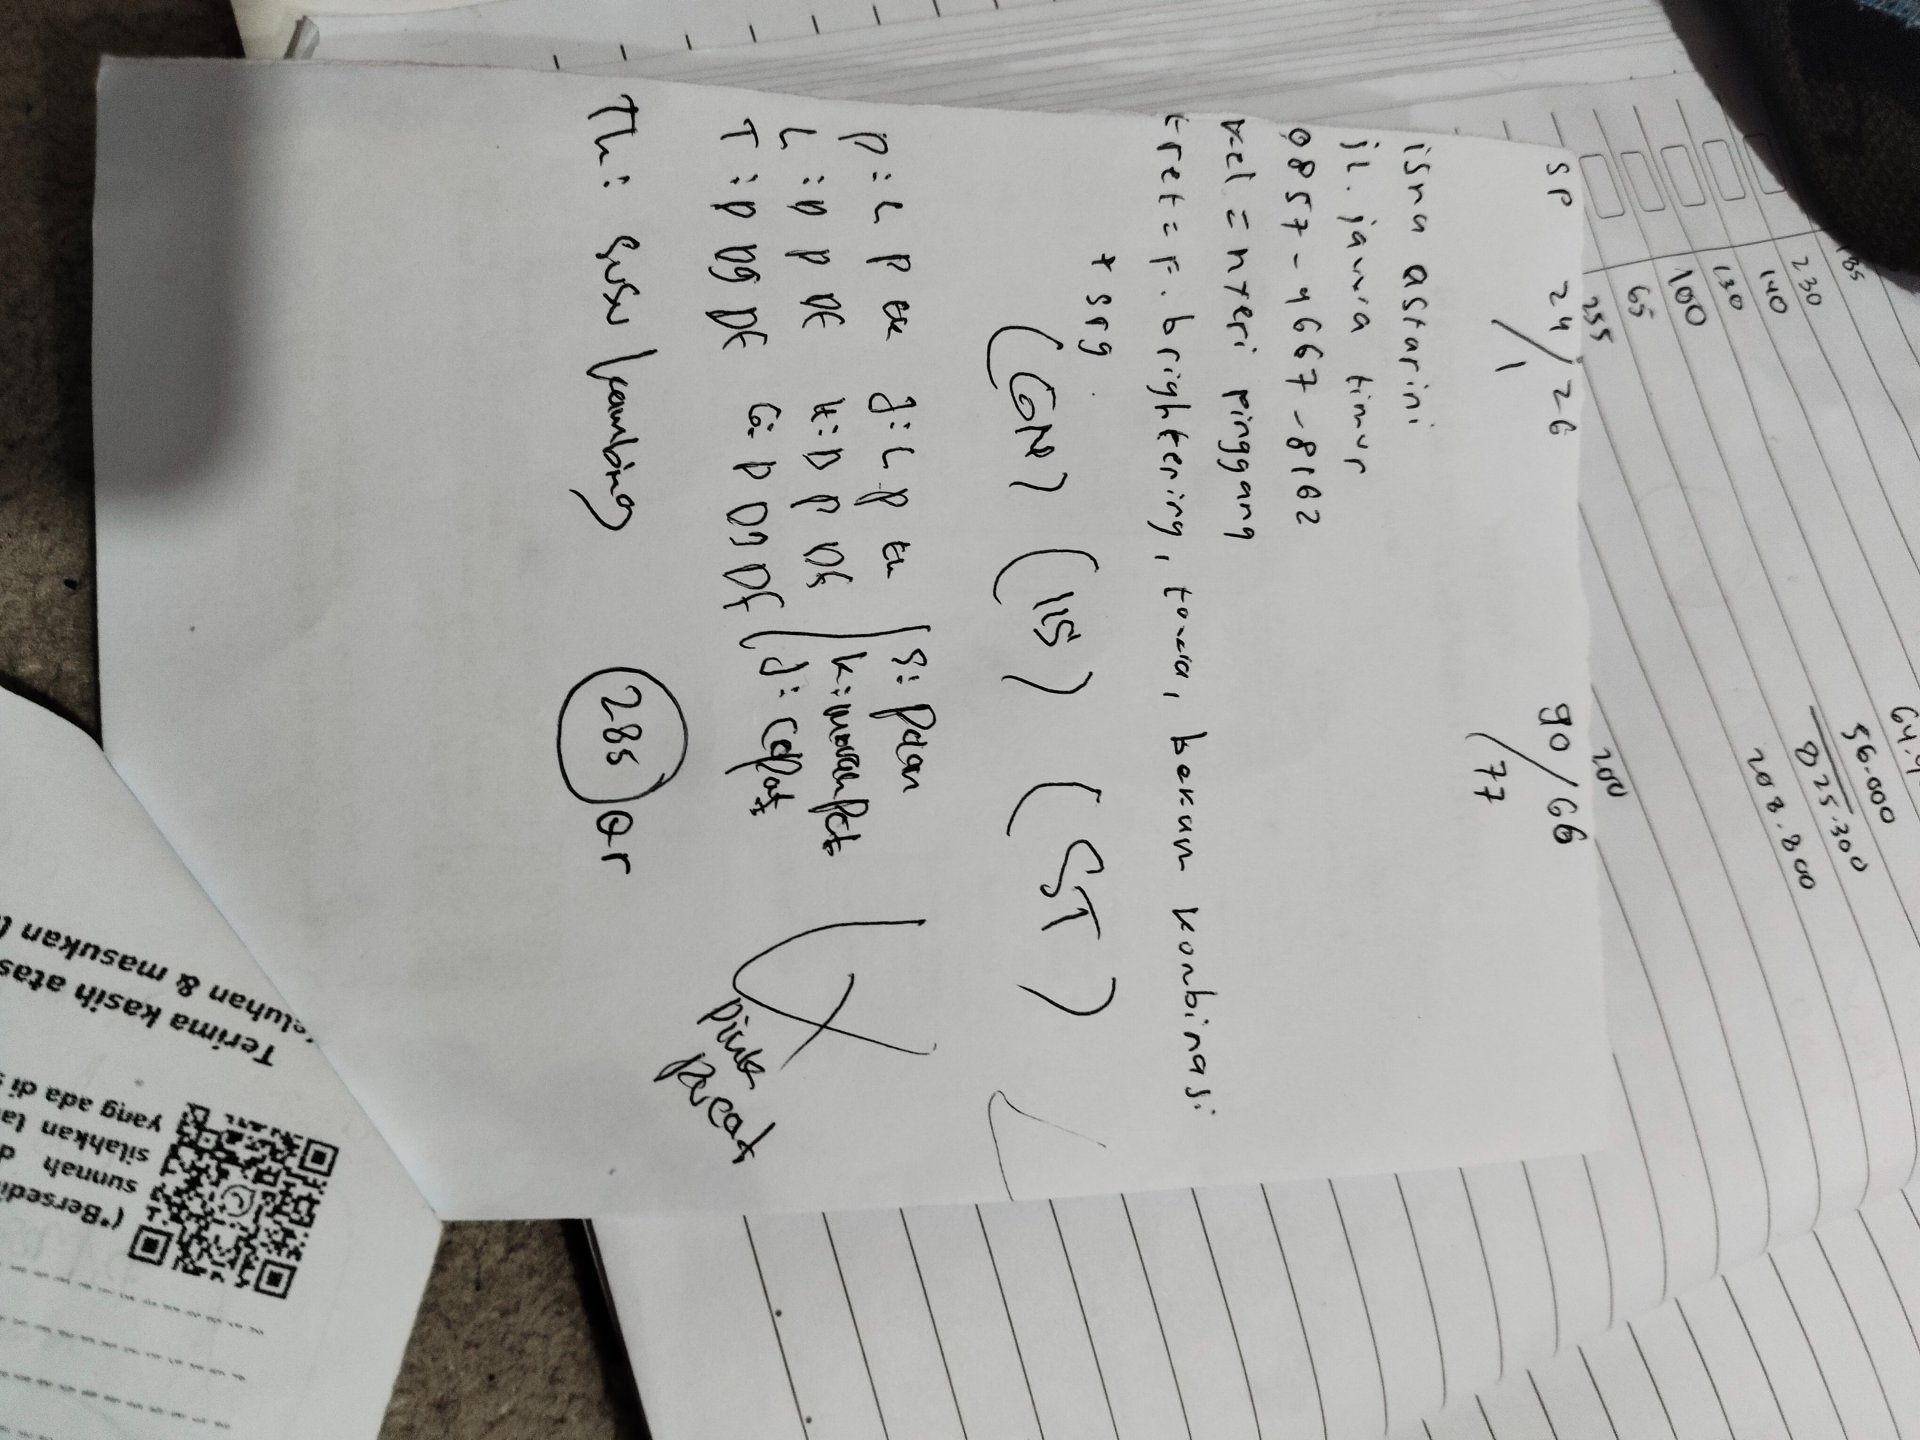 SP 24/26 90/66
1 77
isna astarini
jl. jawa timur
0857-4667-8162
kel = nyeri pinggang
tret = F. brightening, towa, bekam kombinasi
+ srg
(GN) (115) (ST)
P : L P J : L P S : Pelan
L : P P DF K : P P DF k : merah Pct
T : P DG DF G : P DG DF d : cepat
pink
pucat
Th : susu kambing 285 Qr
185
230
140
130
100
65
255
200
56.000
825.300
208.800
Terima kasih atas
eluhan & masukan
("Bersedi
sunnah
silahkan
yang ada di